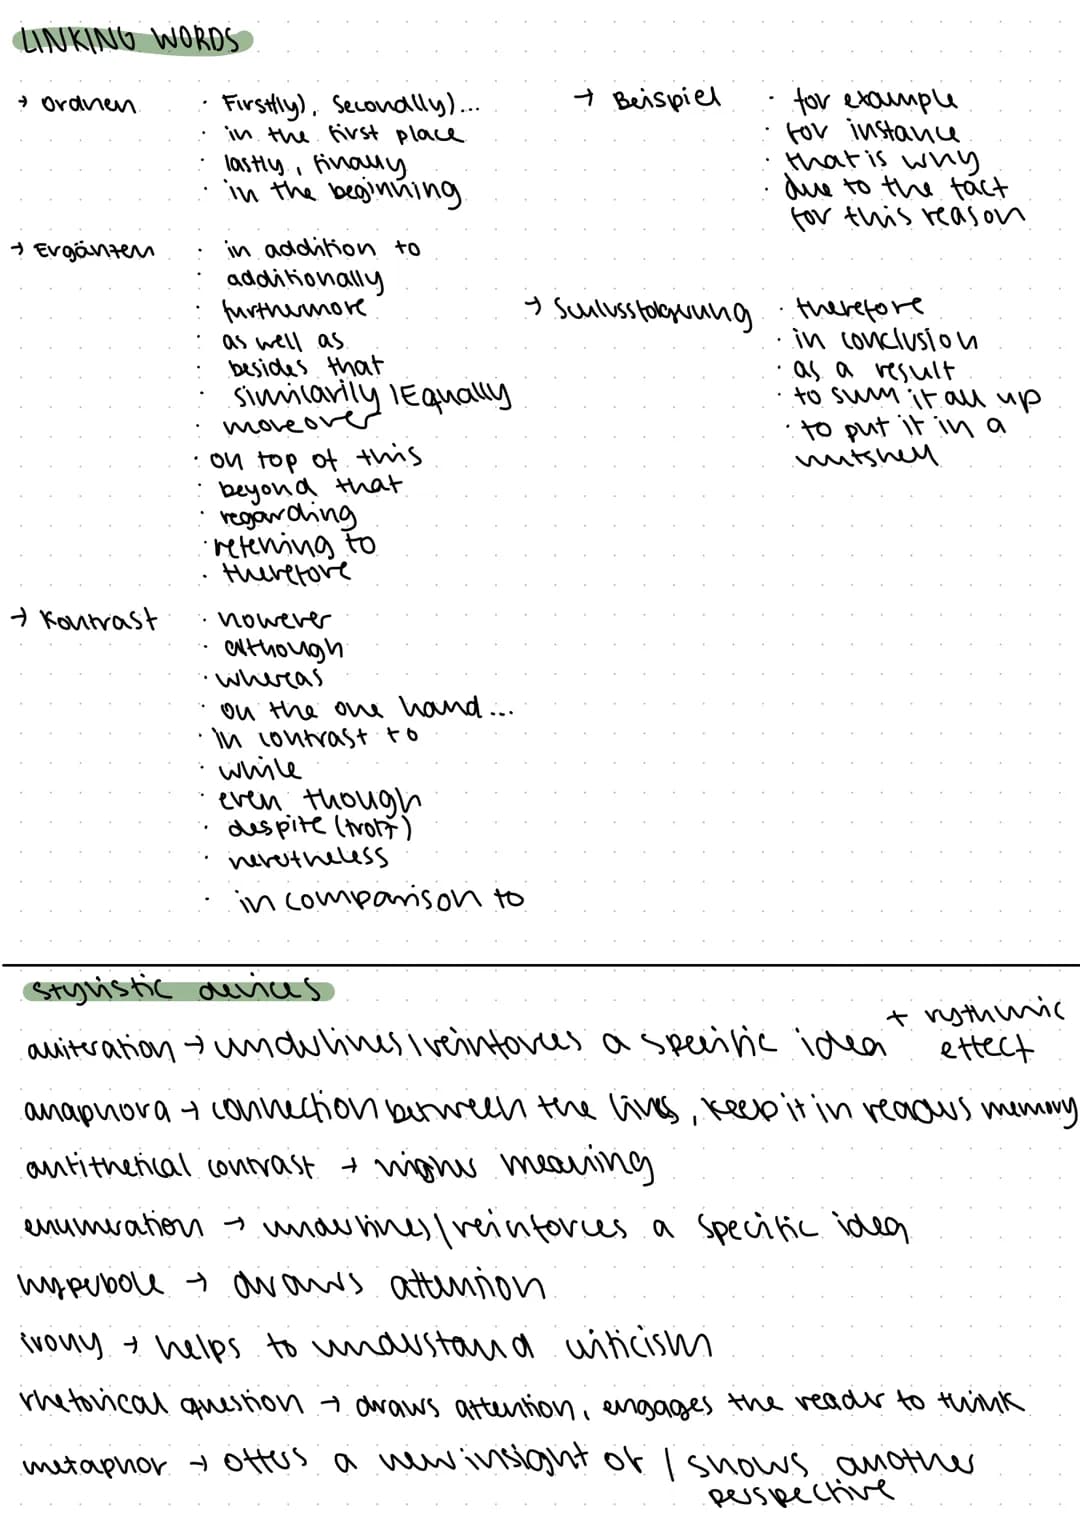 LINKING WORDS
→ Ordnen
· First(ly), Second(ly)...
· in the first place
· lastly, finally
· in the beginning
→ Ergänzen
· in addition to
· additionally
· furthermore
· as well as
· besides that
· similarily / Equally
· moreover
· on top of this
· beyond that
· regarding
· referring to
· therefore
→ Kontrast
· however
· although
· whereas
· on the one hand...
· in contrast to
· while
· even though
· despite (trotz)
· nevertheless
· in comparison to
→ Beispiel
· for example
· for instance
· that is why
· due to the fact
for this reason
→ Schlussfolgerung
· therefore
· in conclusion
· as a result
· to sum it all up
· to put it in a
nutshell
stylistic devices
alliteration → underlines / reinforces a specific idea + rythmic
effect
anaphora → connection between the lines, keep it in readers memory
antithetical contrast → higher meaning
enumeration → underlines / reinforces a specific idea
hyperbole → draws attention
irony → helps to understand criticism
rhetorical question → draws attention, engages the reader to think
metaphor → offers a new insight of / shows another
perspective